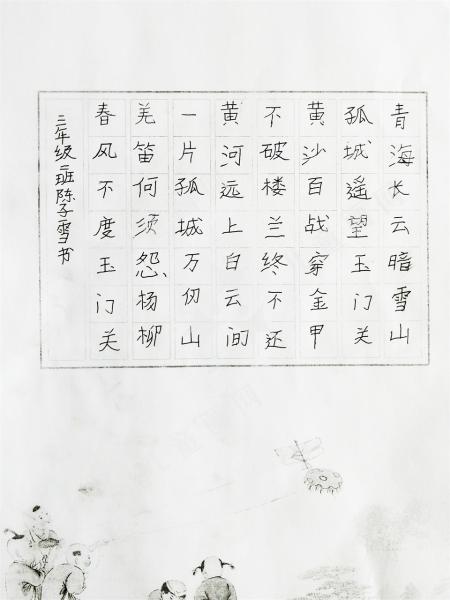 青海长云暗雪山
孤城遥望玉门关
黄沙百战穿金甲
不破楼兰终不还
黄河远上白云间
一片孤城万仞山
羌笛何须怨杨柳
春风不度玉门关
三年级二班陈子雪书